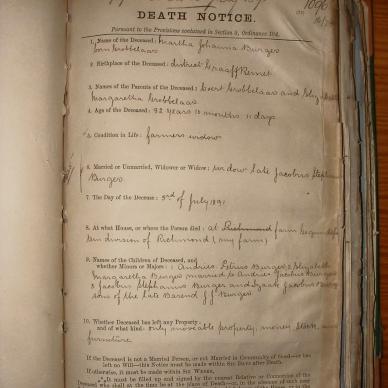 1096
DEATH NOTICE.
Pursuant to the Provisions contained in Section 9, Ordinance 104.
1. Name of the Deceased: Martha Johanna Burger
born Grobbelaar
2. Birthplace of the Deceased: district Graaff Reinet
3. Names of the Parents of Deceased: Evert Grobbelaar and
Margaretha Grobbelaar
4. Age of the Deceased: 82 years 10 months 11 days
5. Condition in Life: farmers widow
6. Married or Unmarried, Widower or Widow: widow late Jacobus Stephanus
Burger
7. The Day of the Decease: 3rd of July 1891
8. At what House, or where the Person died: at Richmond farm
in division of Richmond (my farm)
9. Names of the Children of Deceased, and
whether Minors or Majors: 1 Andries Petrus Burger 2 Elizabeth
Margaretha Burger married to Andries Jacobus Burger
3 Jacobus Stephanus Burger and Izaak Jacobus Burger
sons of the late Barend J J Burger
10. Whether Deceased has left any Property
and of what kind: only moveable property, money stock, and
furniture
If the Deceased is not a Married Person, or not Married in Community of Good—or
left no Will—this Notice must be made within Six Days after Death.
If otherwise, it must be made within Six Weeks.
It must be filled up and signed by the nearest Relative or Connexion of the
Deceased who shall at the time be at the place of Death—or, in the absence of such near